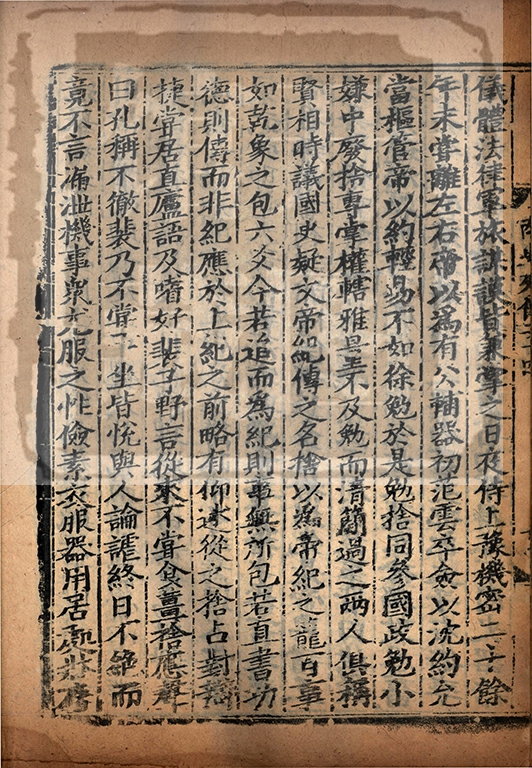 儀體法律軍旅謀謨皆兼掌之日夜侍上豫機密二十餘
年未嘗離左右帝以爲有公輔器初范雲卒僉以沈約允
當樞管帝以約輕易不如徐勉於是勉捨同參國政勉小
嫌中廢捨專掌權轄雅量不及勉而清簡過之兩人俱稱
賢相時議國史疑文帝紀傳之名捨以爲帝紀之籠百事
如乾象之包六爻今若追而爲紀則事無所包若直書功
德則傳而非紀應於上紀之前略有仰述從之捨占對辯
捷嘗居直廬語及嗜好裴子野言從來不嘗食薑捨應聲
曰孔稱不徹裴乃不嘗一坐皆悅與人論謔終日不絕而
竟不言漏泄機事衆尤服之性儉素衣服器用居處牀席